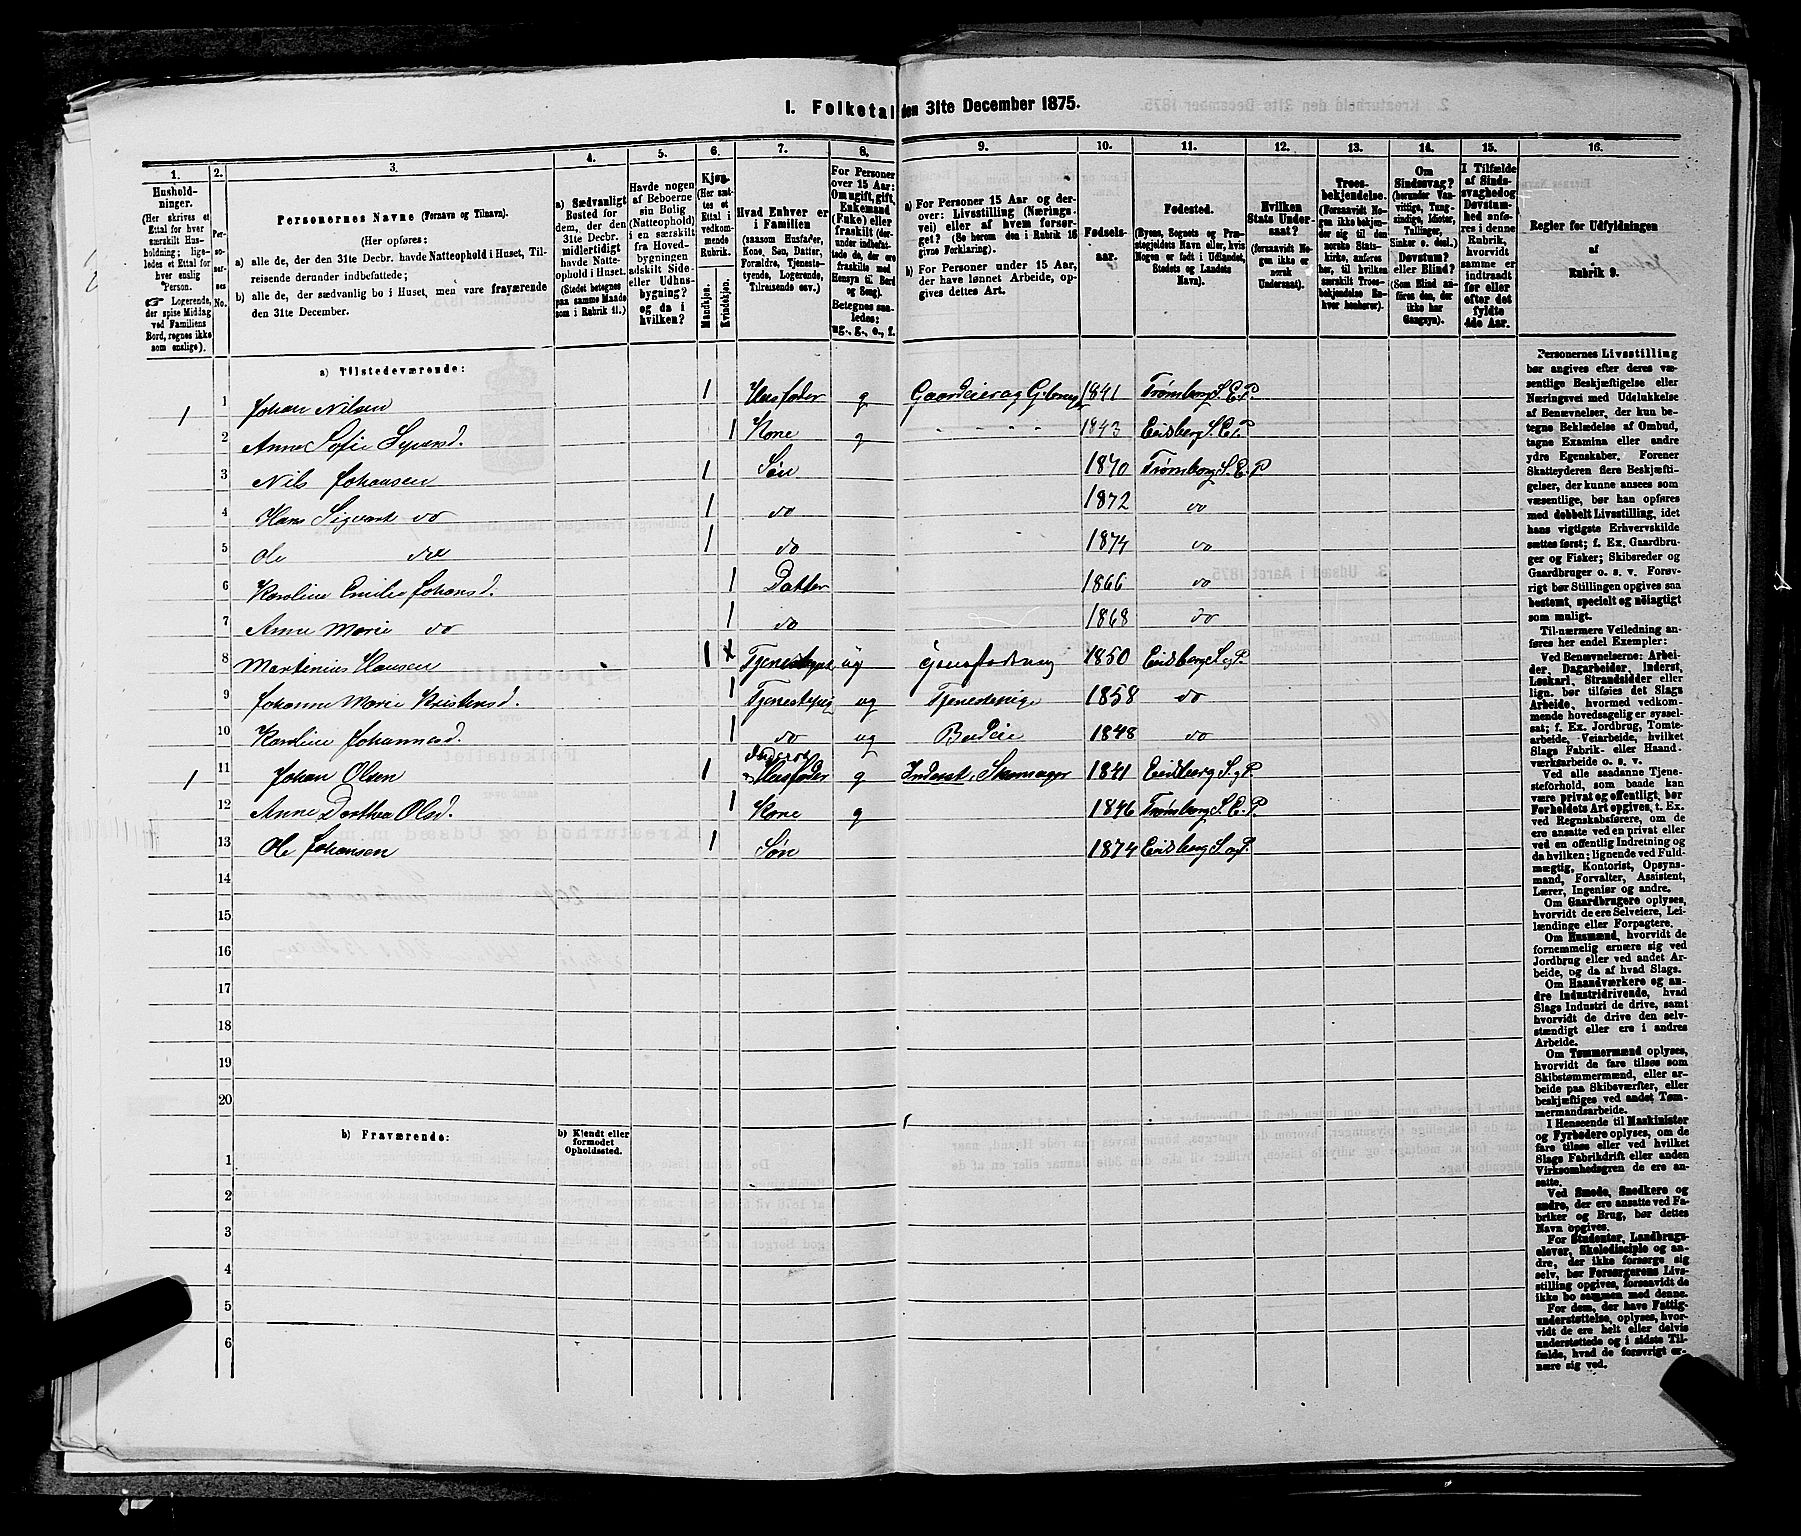 I. Folketal den 31te December 1875.
1.
2.
3.
4.
5.
6.
7.
8.
9.
10.
11.
12.
13.
14.
15.
16.
Hushold-
ninger.
(Her skrives et
Ettal for hver
særskilt Hus-
holdning; lige-
ledes et Ettal for
hver enslig
Person.
☞ Logerende,
der spise Middag
ved Familiens
Bord, regnes ikke
som enslige).
Per-
so-
ner-
nes
No.
Personernes Navne (Fornavn og Tilnavn).
(Her opføres:
a) alle de, der den 31te Decbr. havde Natteophold i Huset, Til-
reisende derunder indbefattede;
b) alle de, der sædvanlig bo i Huset, men vare fraværende
den 31te December.
a) Sædvanligt
Bosted for
dem, der den
31te Decbr.
midlertidigt
havde Natte-
ophold i Huset.
(Stedet betegnes
paa samme Maade
som i Rubrik 11.)
Havde nogen
af Beboerne
sin Bolig
(Natteophold)
i en særskilt
fra Hoved-
bygningen
adskilt Side-
eller Udhus-
bygning?
og da i
hvilken?
Kjøn.
(Her sæt-
tes et
Ettal i
vedkom-
mende
Rubrik.
Mandkjøn.
Kvindekjøn.
Hvad Enhver er
i Familien
(saasom Husfader,
Kone, Søn, Datter,
Forældre, Tjeneste-
tyende, Logerende,
Tilreisende osv.)
For Personer
over 15 Aar:
Om ugift, gift,
Enkemand
(Enke) eller
fraskilt (der-
under indbefat-
tede de, der ere
fraskilte med
Hensyn til Bord
og Seng).
Betegnes saa-
ledes:
ug., g., e., f.
a) For Personer 15 Aar og der-
over: Livsstilling (Nærings-
vei) eller af hvem forsør-
get? (Se herom den i Rubrik 16
givne Forklaring).
b) For Personer under 15 Aar,
der have lønnet Arbeide, op-
gives dettes Art.
Fødsels-
aar.
Fødested.
(Byens, Sognets og Præ-
stegjeldets Navn eller, hvis
Nogen er født i Udlandet,
Stedets og Landets
Navn).
Hvilken
Stats Under-
saat?
(forsaavidt No-
gen ikke er
norsk
Undersaat).
Troes-
bekjendelse.
(Forsaavidt No-
gen ikke beken-
der sig til den
norske Stats-
kirke, anføres
her, til hvilken
særskilt Troes-
bekjendelse En-
hver henhører).
Om
Sindssvag?
(herunder Van-
vittige, Tung-
sindige, Idioter,
Tullinger,
Sinker o. desl.)
Døvstum?
eller Blind?
(Som Blind an-
føres den, der
ikke har
Gangsyn).
I Tilfælde
af Sinds-
svaghed og
Døvstum-
hed anfø-
res i denne
Rubrik,
hvorvidt
samme er
indtraadt
før eller
efter det
fyldte
4de Aar.
Regler for Udfyldningen
af
Rubrik 9.
a) Tilstedeværende:
1 1 Johan Nilsen 1 Husfader g Gaardeier og Gbrug 1841 Trømborg S. E. P
2 Anne Sofie Syvers d. 1 Kone g 1843 Eidsberg S. E. P
3 Nils Johansen 1 Søn 1870 Trømborg S. E. P
4 Hans Sigvart do 1 do 1872 do
5 Ole do 1 do 1874 do
6 Karoline Emilie Johans d. 1 Datter 1866 do
7 Anne Marie do 1 do 1868 do
8 Martinius Hansen 1 Tjenestyende ug 1850 Eidsberg S og P.
9 Johanne Marie Kristens d. 1 Tjenestepig ug Tjenestepige 1858 do
10 Karoline Johannes d. 1 do ug Budeie 1848 do
1 11 Johan Olsen 1 Husfader g Inderst, Skomager 1841 Eidsberg S og P.
12 Anne Dorthea Ols d. 1 Kone g 1846 Trømborg S. E. P.
13 Ole Johansen 1 Søn 1874 Eidsberg S og P.
14
15
16
17
18
19
20
b) Fraværende:
b) Kjendt eller
formodet
Opholdssted.
1
2
3
4
5
6
Personernes Livsstilling
bør angives efter deres væ-
sentlige Beskjæftigelse eller
Næringsvei med Udelukkelse
af Benævnelser, der kun be-
tegne Beklædelse af Ombud,
tagne Examina eller andre
ydre Egenskaber. Forener
Skatteyderen flere Beskjæfti-
gelser, der kunne ansees som
væsentlige, bør han opføres
med dobbelt Livsstilling, idet
hans vigtigste Erhvervskilde
sættes først; f. Ex. Gaardbru-
ger og Fisker; Skibsreder og
Gaardbruger o. s. v. Forøv-
rigt bør Stillingen opgives saa
bestemt, specielt og nøiagtigt
som muligt.
Til nærmere Veiledning an-
føres her endel Exempler:
Ved Benævnelserne: Arbei-
der, Dagarbeider, Inderst,
Løskarl, Strandsidder eller
lign. bør tilføies det Slags
Arbeide, hvormed vedkom-
mende hovedsagelig er syssel-
sat; f. Ex. Jordbrug, Tomte-
arbeide, Veiarbeide, hvilket
Slags Fabrik- eller Haand-
værksarbeide o. s. v.
Ved alle saadanne Tjene-
steforhold, som baade kan
være privat og offentligt, bør
Forholdets Art opgives, t. Ex.
ved Regnskabsførere, om de
ere ansatte ved en privat eller
ved en offentlig Indretning og
da hvilken; lignende ved Fuld-
mægtig, Kontorist, Opsyns-
mand, Forvalter, Assistent,
Lærer, Ingeniør og andre.
Om Gaardbrugere oplyses,
hvorvidt de ere Selveiere, Lei-
lændinge eller Forpagtere.
Om Husmænd, hvorvidt de
fornemmelig ernære sig ved
Jordbrug eller ved andet Ar-
beide, og da af hvad Slags.
Om Haandværkere og an-
dre Industridrivende, hvad
Slags Industri de drive, samt
hvorvidt de drive den selv-
stændigt eller ere i andres
Arbeide.
Om Tømmermænd oplyses,
hvorvidt de fare tilsøs som
Skibstømmermænd, eller ar-
beide paa Skibsværfter, eller
beskjæftiges ved andet Tøm-
mermandsarbeide.
I Henseende til Maskinister
og Fyrbødere oplyses, om de
fare tilsøs eller ved hvilket
Slags Fabrikdrift eller anden
Virksomhedsgren de ere an-
satte.
Ved Smede, Snedkere og
andre, der ere ansatte ved Fa-
briker og Brug, bør dettes
Navn opgives.
For Studenter, Landbrugs-
elever, Skoledisciple og an-
dre, der ikke forsørge sig
selv, bør Forsørgerens Livs-
stilling opgives, forsaavidt de
ikke bo sammen med denne.
For dem, der have Fattig-
understøttelse, oplyses, hvor-
vidt de ere helt eller delvis
understøttede og i sidste Til-
fælde, hvad de forøvrigt er-
nære sig ved.